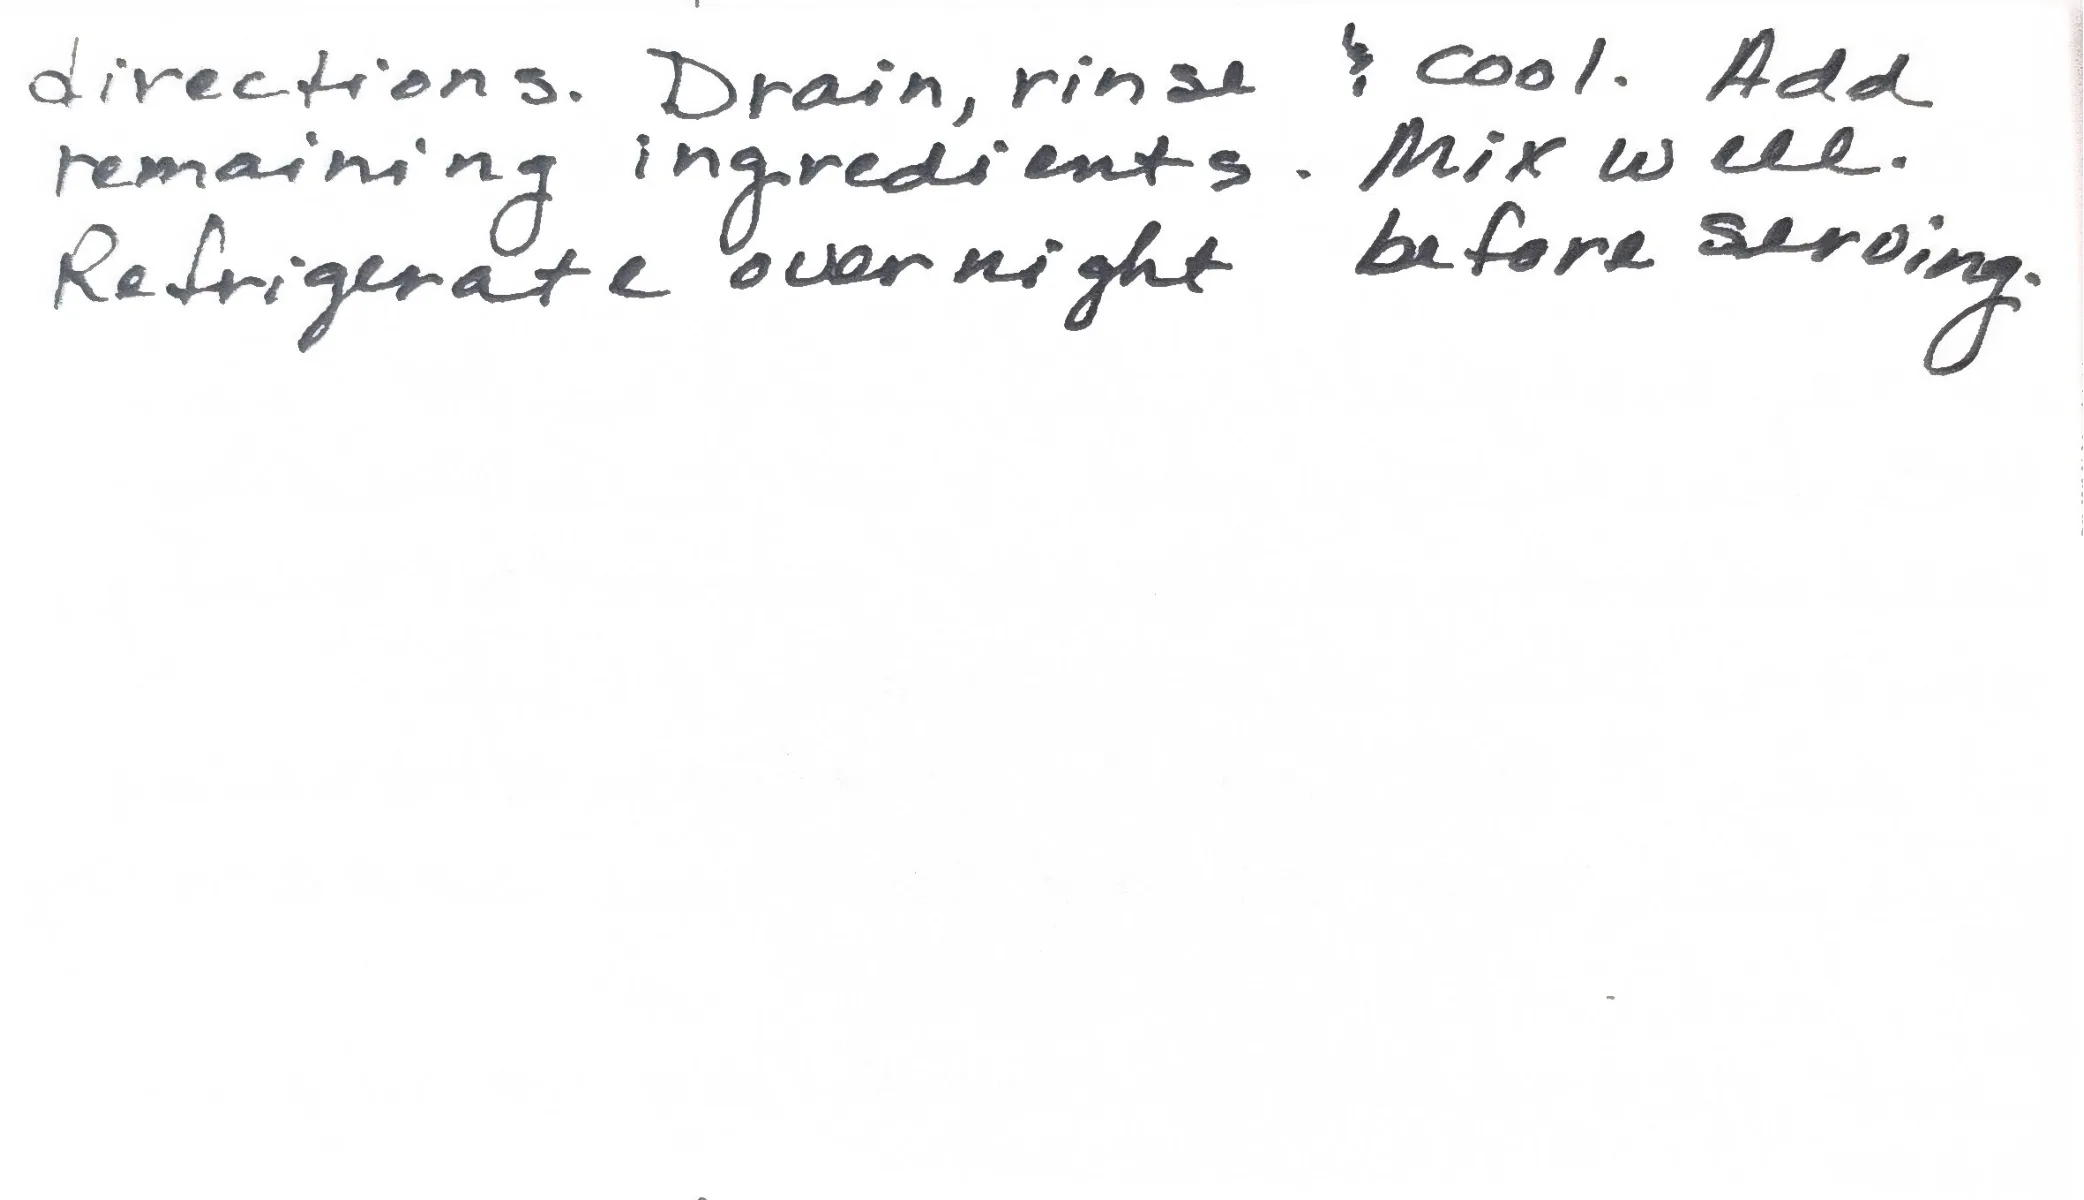 directions. Drain, rinse & cool. Add
remaining ingredients. Mix well.
Refrigerate overnight before serving.